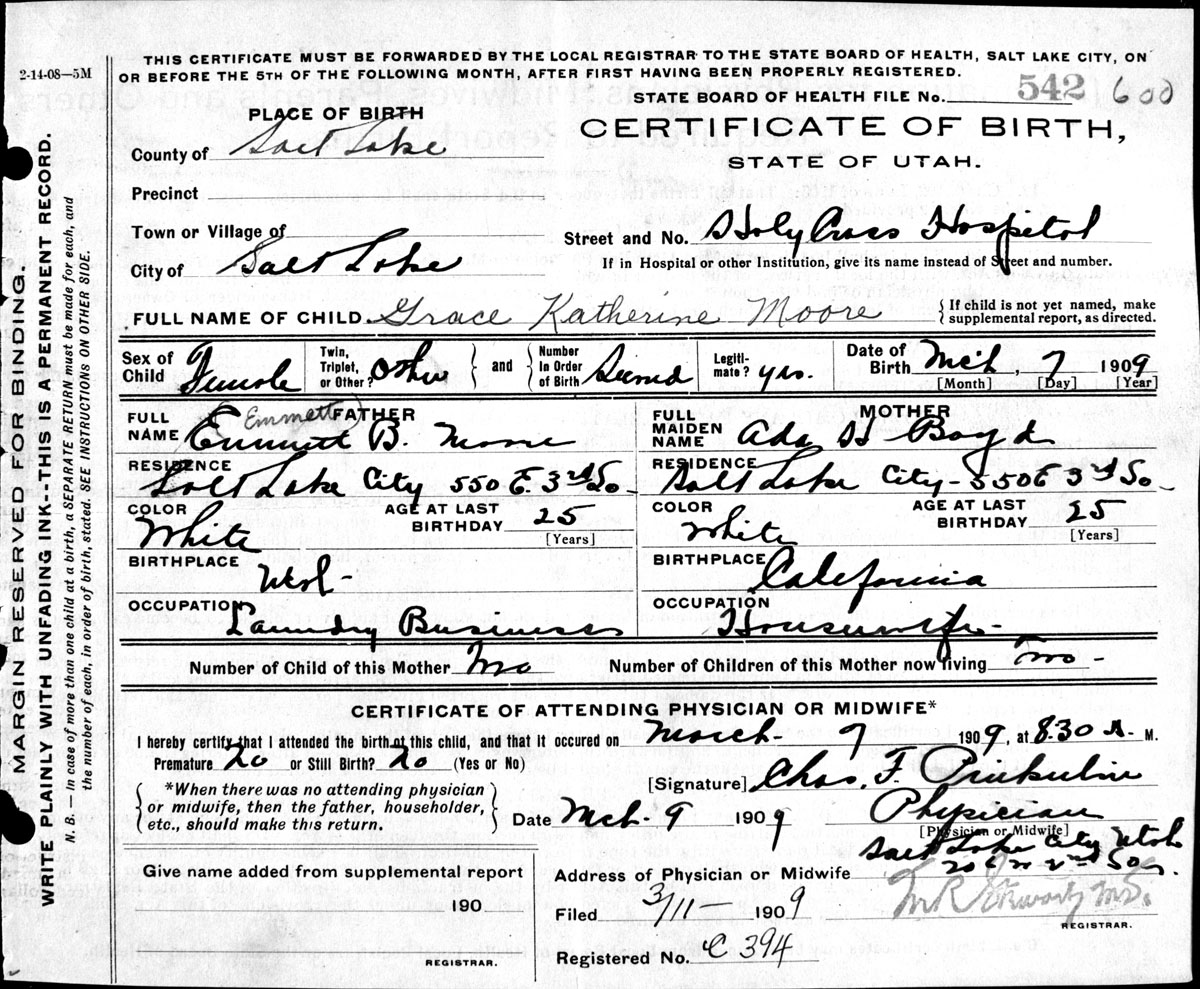 2-14-08—5M
THIS CERTIFICATE MUST BE FORWARDED BY THE LOCAL REGISTRAR TO THE STATE BOARD OF HEALTH, SALT LAKE CITY, ON
OR BEFORE THE 5TH OF THE FOLLOWING MONTH, AFTER FIRST HAVING BEEN PROPERLY REGISTERED.
STATE BOARD OF HEALTH FILE No. 542 600
PLACE OF BIRTH
CERTIFICATE OF BIRTH,
STATE OF UTAH.
County of Salt Lake
Precinct
Town or Village of
Street and No. Holy Cross Hospital
City of Salt Lake
If in Hospital or other Institution, give its name instead of Street and number.
FULL NAME OF CHILD Grace Katherine Moore
{If child is not yet named, make
supplemental report, as directed.
Sex of Child Female
Twin, Triplet, or Other? Other
and
Number In Order of Birth Second
Legitimate? yes.
Date of Birth Mch, 7 1909
[Month] [Day] [Year]
FATHER
FULL NAME Emmett B. Moore
Emmett
RESIDENCE
Salt Lake City 550 E. 3rd So
COLOR White
AGE AT LAST BIRTHDAY 25
[Years]
BIRTHPLACE
OCCUPATION
Laundry Business
MOTHER
FULL MAIDEN NAME Ada H Boyd
RESIDENCE
Salt Lake City - 550 E 3rd So
COLOR White
AGE AT LAST BIRTHDAY 25
[Years]
BIRTHPLACE California
OCCUPATION
Housewife
Number of Child of this Mother Two
Number of Children of this Mother now living Two -
CERTIFICATE OF ATTENDING PHYSICIAN OR MIDWIFE*
I hereby certify that I attended the birth of this child, and that it occured on March 7 1909, at 8.30 A. M.
Premature No or Still Birth? No (Yes or No)
[Signature] Chas. F.
{*When there was no attending physician
or midwife, then the father, householder,
etc., should make this return.}
Date Mch. 9 1909
Physician
[Physician or Midwife]
Give name added from supplemental report
190
REGISTRAR.
Salt Lake City Utah
Address of Physician or Midwife
Filed 3/11 — 1909
REGISTRAR.
Registered No. C 394
MARGIN RESERVED FOR BINDING.
WRITE PLAINLY WITH UNFADING INK--THIS IS A PERMANENT RECORD.
N. B. — In case of more than one child at a birth, a SEPARATE RETURN must be made for each, and
the number of each, in order of birth, stated. SEE INSTRUCTIONS ON OTHER SIDE.